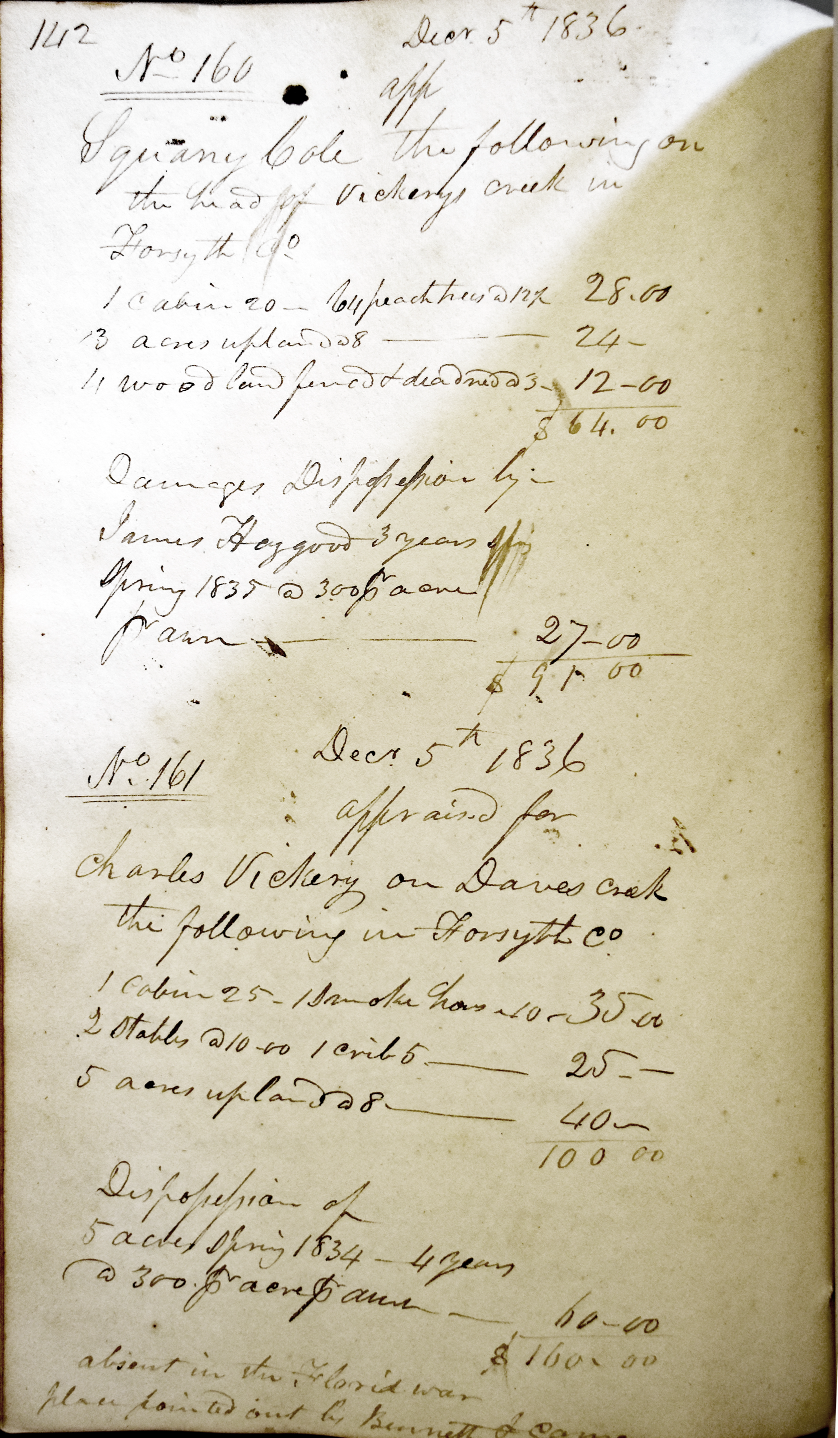 142
Decr 5th 1836
No 160
app
Squany Cole the following on
the head of Vickerys creek in
Forsyth Co
1 cabin 20 — 64 peach trees @ 12½ 28.00
3 acres upland @ 8 — 24 –
4 wood land fenced & deadned @ 3 – 12–00
$ 64.00
Damages Dispossession by –
James Haygood 3 years
Spring 1835 @ 300 pr acre
pr ann — 27–00
$ 91 00
Decr 5th 1836
No. 161
appraised for
Charles Vickery on Daves creek
the following in Forsyth Co
1 cabin 25 – 1 Smoke house 10 – 35.00
2 Stables @ 10.00 1 crib 5 — 25 –
5 acres upland @ 8 — 40 –
100 00
Dispossession of
5 acres Spring 1834 – 4 years
@ 300 pr acre pr ann — 60–00
$ 160.00
absent in the Florid war
place pointed out by Bennett